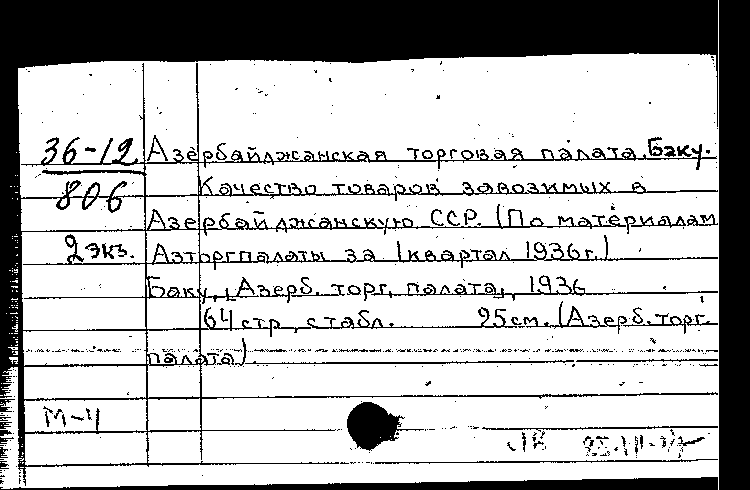 36-12 Азербайджанская торговая палата. Баку.
806 Качество товаров завозимых в
Азербайджанскую ССР. (По материалам
2 экз. Азторгпалаты за I квартал 1936 г.)
Баку, "Азерб. торг. палата", 1936
64 стр. с табл. 25 см. (Азерб. торг.
палата).
М-4